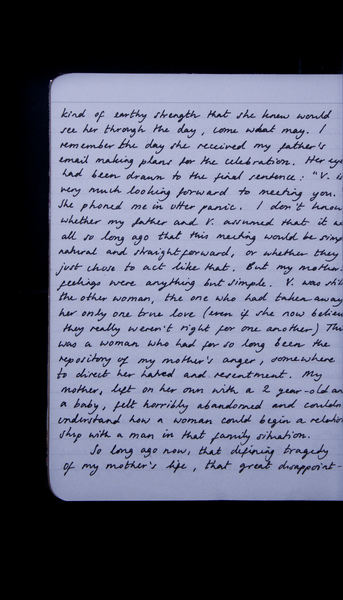 kind of earthy strength that she knew would
see her through the day, come what may. I
remember the day she received my father's
email making plans for the celebration. Her eye
had been drawn to the final sentence: "V. is
very much looking forward to meeting you.
She phoned me in utter panic. I don't know
whether my father and V. assumed that it was
all so long ago that this meeting would be simple
natural and straightforward, or whether they
just chose to act like that. But my mother's
feelings were anything but simple. V. was still
the other woman, the one who had taken away
her only one true love (even if she now believe
they really weren't right for one another) This
was a woman who had for so long been the
repository of my mother's anger, somewhere
to direct her hatred and resentment. My
mother, left on her own with a 2 year-old an
a baby, felt horribly abandoned and couldn
understand how a woman could begin a relation
ship with a man in that family situation.
So long ago now, that defining tragedy
of my mother's life, that great disappoint-